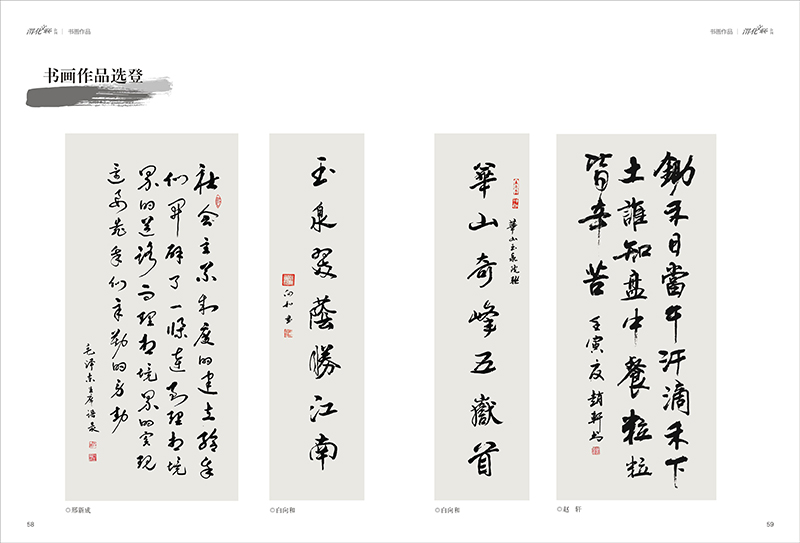 书画作品
书画作品
书画作品选登
社会主义制度的建立给我
们開辟了一條達到理想境
界的道路而理想境界的实现
还要靠我们辛勤的劳动
毛泽东主席语录
玉泉翠蔭勝江南
向和書
華山奇峰五嶽首
華山玉泉院聯
鋤禾日當午汗滴禾下
土誰知盘中餐粒粒
皆辛苦
壬寅夏趙軒书
◎邢新成
◎白向和
◎白向和
◎赵 轩
58
59